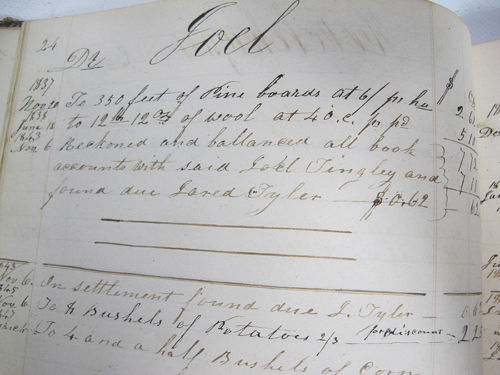 24
Joel
Dr
$
1837
Nov 20 To 350 feet of Pine boards at 6/ pr hu 2
1838
June 18 to 12 lb 12 oz of wool at 40.c. pr pd 5
1843
Nov 6 Reckoned and ballanced all book
accounts with said Joel Tingley and
found due Jared Tyler — $0.62 62
Nov 6. In settlement found due J. Tyler —
Nov 6. To 4 Bushels of Potatoes 2/3 for discount - 2
To 4 and a half Bushels of Corn